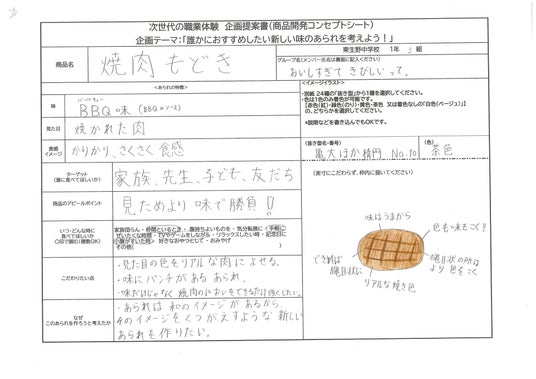 次世代の職業体験 企画提案書(商品開発コンセプトシート)
企画テーマ:「誰かにおすすめしたい新しい味のあられを考えよう!」
東生野中学校 1年 3組
商品名
焼肉もどき
グループ名(メンバー氏名は裏面に記入ください)
おいしすぎて きびしいって。
<あられの特徴>
<イメージイラスト>
味
バーベキュー
BBQ味 (BBQのソース)
・別紙 24種の「抜き型」から1種を選択してください。
・色は1色のみ着色が可能です。
【赤色(紅)・緑色(のり)・黄色・茶色 又は着色なしの「白色(ベージュ)」の、どちらかを選択ください。
*説明などを書き込んでもOKです。
見た目
焼かれた肉
食感イメージ
かりかり、さくさく食感
(抜き型名・番号)
萬大ほか楕円 No.10
(色)
茶色
ターゲット
(誰に食べてほしいか)
家族、先生、子ども、友だち
(実寸にこだわらず、枠内に描いてください)
商品のアピールポイント
見ためより味で勝負!
いつ・どんな時に
食べてほしいか
○印で囲む(複数OK)
家族団らん・仲間といるとき・腹持ちよいものを・気分転換に・手軽に
ぜいたくな時間・TVやゲームをしながら・リラックスしたい時・記念日に
小腹がすいた時・好きなおやつとして・おみやげ
その他( )
味はうまから
色も味もこく!
できれば
縄目状に
縄目状の所は
より色をこく
リアルな焼き色
こだわりたい点
・見た目の色をリアルな肉によせる。
・味にパンチがあるあられ。
・味だけじゃなく焼肉のにおいをできるだけ強くしたい。
なぜ
このあられを作ろうと考えたか
・あられは和のイメージがあるから、
そのイメージをくつがえすような新しい
あられを作りたい。